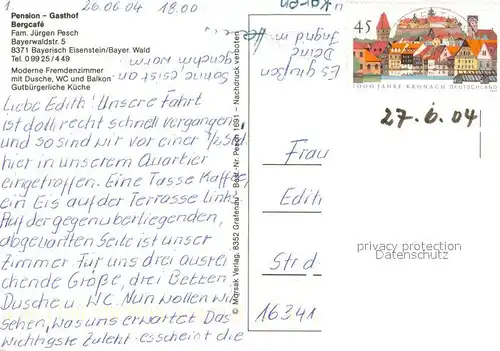 1. 26.06.04 18.00
Pension – Gasthof
Bergcafé
Fam. Jürgen Pesch
Bayerwaldstr. 5
8371 Bayerisch Eisenstein/Bayer. Wald
Tel. 0 99 25 / 4 49
Moderne Fremdenzimmer
mit Dusche, WC und Balkon
Gutbürgerliche Küche
Liebe Edith! Unsere Fahrt
ist doll recht schnell vergangen,
und so sind wir vor einer 1/2 Std.
hier in unserem Quartier
eingetroffen. Eine Tasse Kaffee,
ein Eis auf der Terrasse links
Auf der gegenüberliegenden,
abgewandten Seite ist unser
Zimmer. Für uns drei ausrei
chende Größe, drei Betten
Dusche u. WC. Nun wollen wir
sehen, was uns erwartet. Das
wichtigste zuletzt: es scheint die
Sonne
Es grüßen
Deine
Ingrid
© Morsak Verlag, 8352 Grafenau – Best.-Nr. Pesch 1691 – Nachdruck verboten
45
1000 JAHRE KRONACH DEUTSCHLAND
27.6.04
Frau
Edit
Str d
16341
privacy protection
Datenschutz